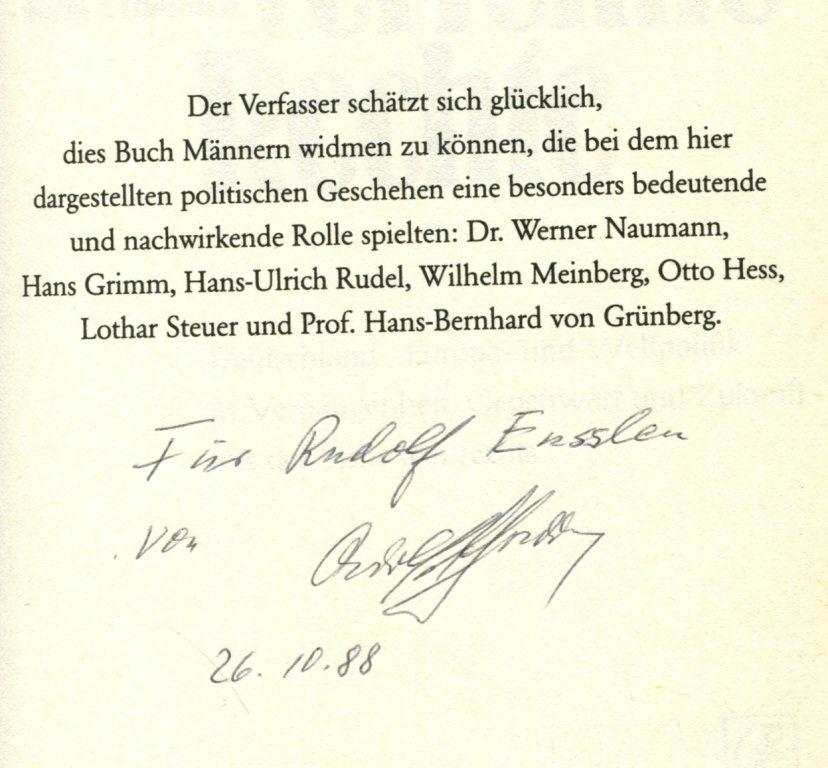 Der Verfasser schätzt sich glücklich,
dies Buch Männern widmen zu können, die bei dem hier
dargestellten politischen Geschehen eine besonders bedeutende
und nachwirkende Rolle spielten: Dr. Werner Naumann,
Hans Grimm, Hans-Ulrich Rudel, Wilhelm Meinberg, Otto Hess,
Lothar Steuer und Prof. Hans-Bernhard von Grünberg.
Für Rudolf Ensslen
von
26.10.88